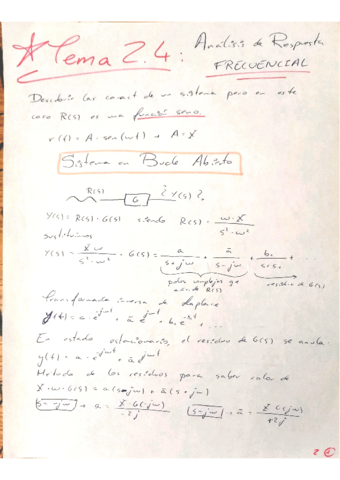 * Tema 2.4: Análisis de Respuesta
FRECUENCIAL
Describir las caract de un sistema pero en este
caso R(s) es una función seno.
r(t) = A · sen(wt) → A = X
Sistema en Bucle Abierto
R(s) G ¿Y(s)?
Y(s) = R(s) · G(s) siendo R(s) = w·X / s²+w²
sustituimos
Y(s) = X·w / s²+w² · G(s) = a / s+jw + ā / s-jw + b₁ / s+s₁ + ...
polos complejos que
residuo de G(s)
añade R(s)
Transformada inversa de Laplace
y(t) = a·e^-jwt + ā e^jwt + b₁ e^-s₁t + ...
En estado estacionario, el residuo de G(s) se anula
y(t) = a · e^-jwt + ā e^jwt
Método de los residuos para saber valor de
X·w·G(s) = a(s-jw) + ā(s+jw)
s=-jw → a = X·G(-jw) / -2j s=jw → ā = X·G(jw) / +2j
2